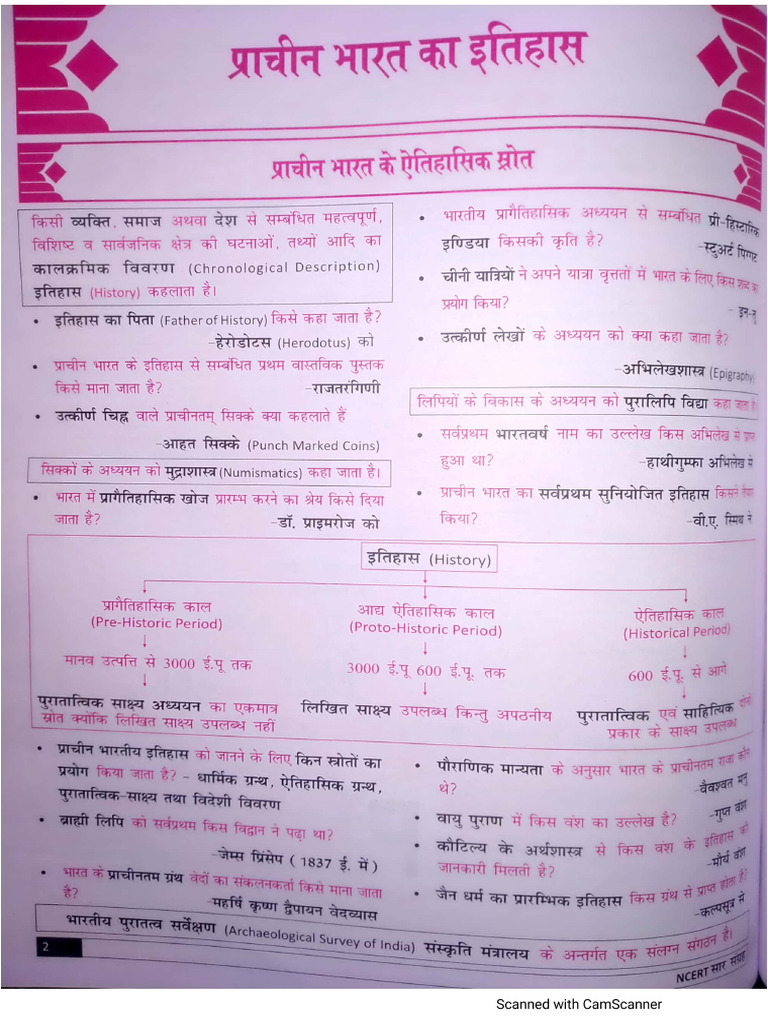 प्राचीन भारत का इतिहास
प्राचीन भारत के ऐतिहासिक स्रोत
किसी व्यक्ति, समाज अथवा देश से सम्बंधित महत्वपूर्ण,
विशिष्ट व सार्वजनिक क्षेत्र की घटनाओं, तथ्यों आदि का
कालक्रमिक विवरण (Chronological Description)
इतिहास (History) कहलाता है।
• इतिहास का पिता (Father of History) किसे कहा जाता है?
-हेरोडोटस (Herodotus) को
• प्राचीन भारत के इतिहास से सम्बंधित प्रथम वास्तविक पुस्तक
किसे माना जाता है? -राजतरंगिणी
• उत्कीर्ण चिह्न वाले प्राचीनतम् सिक्के क्या कहलाते हैं
-आहत सिक्के (Punch Marked Coins)
सिक्कों के अध्ययन को मुद्राशास्त्र (Numismatics) कहा जाता है।
• भारत में प्रागैतिहासिक खोज प्रारम्भ करने का श्रेय किसे दिया
जाता है? -डॉ. प्राइमरोज को
• भारतीय प्रागैतिहासिक अध्ययन से सम्बंधित प्री-हिस्टारिक
इण्डिया किसकी कृति है? -स्टुअर्ट पिग्गट
• चीनी यात्रियों ने अपने यात्रा वृत्ततों में भारत के लिए किस शब्द का
प्रयोग किया? - इन-तु
• उत्कीर्ण लेखों के अध्ययन को क्या कहा जाता है?
-अभिलेखशास्त्र (Epigraphy)
लिपियों के विकास के अध्ययन को पुरालिपि विद्या कहा जाता है।
• सर्वप्रथम भारतवर्ष नाम का उल्लेख किस अभिलेख से प्राप्त
हुआ था? -हाथीगुम्फा अभिलेख से
• प्राचीन भारत का सर्वप्रथम सुनियोजित इतिहास किसने तैयार
किया? -वी.ए. स्मिथ ने
इतिहास (History)
प्रागैतिहासिक काल
(Pre-Historic Period)
मानव उत्पत्ति से 3000 ई.पू तक
पुरातात्विक साक्ष्य अध्ययन का एकमात्र
स्रोत क्योंकि लिखित साक्ष्य उपलब्ध नहीं
आद्य ऐतिहासिक काल
(Proto-Historic Period)
3000 ई.पू 600 ई.पू. तक
लिखित साक्ष्य उपलब्ध किन्तु अपठनीय
ऐतिहासिक काल
(Historical Period)
600 ई.पू. से आगे
पुरातात्विक एवं साहित्यिक दोनों
प्रकार के साक्ष्य उपलब्ध
• प्राचीन भारतीय इतिहास को जानने के लिए किन स्रोतों का
प्रयोग किया जाता है? - धार्मिक ग्रन्थ, ऐतिहासिक ग्रन्थ,
पुरातात्विक-साक्ष्य तथा विदेशी विवरण
• ब्राह्मी लिपि को सर्वप्रथम किस विद्वान ने पढ़ा था?
-जेम्स प्रिंसेप ( 1837 ई. में )
• भारत के प्राचीनतम ग्रंथ वेदों का संकलनकर्ता किसे माना जाता
है? -महर्षि कृष्ण द्वैपायन वेदव्यास
• पौराणिक मान्यता के अनुसार भारत के प्राचीनतम राजा कौन
थे? -वैवश्वत मनु
• वायु पुराण में किस वंश का उल्लेख है? -गुप्त वंश
• कौटिल्य के अर्थशास्त्र से किस वंश के इतिहास की
जानकारी मिलती है? -मौर्य वंश
• जैन धर्म का प्रारम्भिक इतिहास किस ग्रंथ से प्राप्त होता है?
-कल्पसूत्र से
भारतीय पुरातत्व सर्वेक्षण (Archaeological Survey of India) संस्कृति मंत्रालय के अन्तर्गत एक संलग्न संगठन है।
2
NCERT सार संग्रह
Scanned with CamScanner